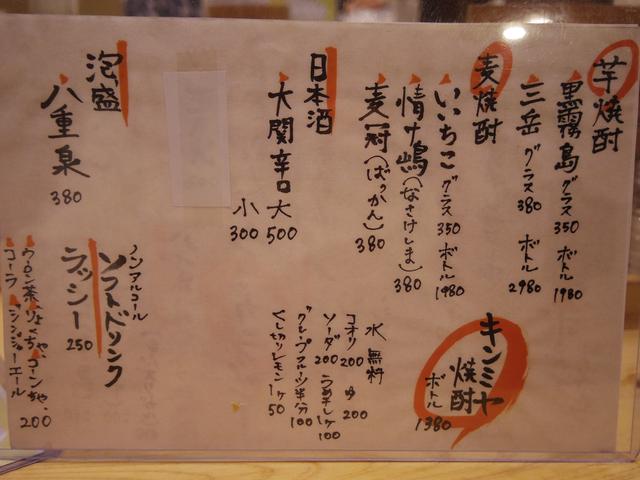 芋焼酎
黒霧島 グラス 350 ボトル 1980
三岳 グラス 380 ボトル 2980
麦焼酎
いいちこ グラス 350 ボトル 1980
情け嶋(なさけしま) 380
麦冠(ばっかん) 380
キンミヤ
焼酎
ボトル
1380
日本酒
大関辛口 大 500
小 300
水 無料
コオリ 200 ゆ 200
ソーダ 200 うめ干し1ケ 100
グレープフルーツ半分 100
くし切りレモン1ケ 50
泡盛
八重泉 380
ノンアルコール
ソフトドリンク
ラッシー 250
ウーロン茶、りょくちゃ、コーンちゃ、
コーラ ジンジャーエール 200